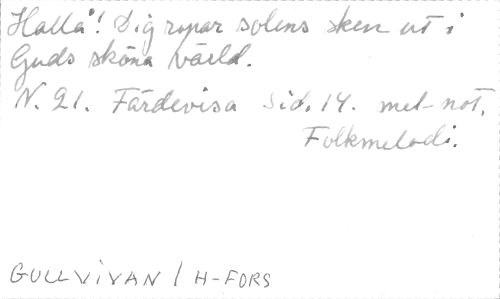 Hallå! Dig ropar solens sken ut i
Guds sköna värld.
N. 21. Färdevisa Sid. 14. mel-not.
Folkmelodi.
GULLVIVAN / H-FORS